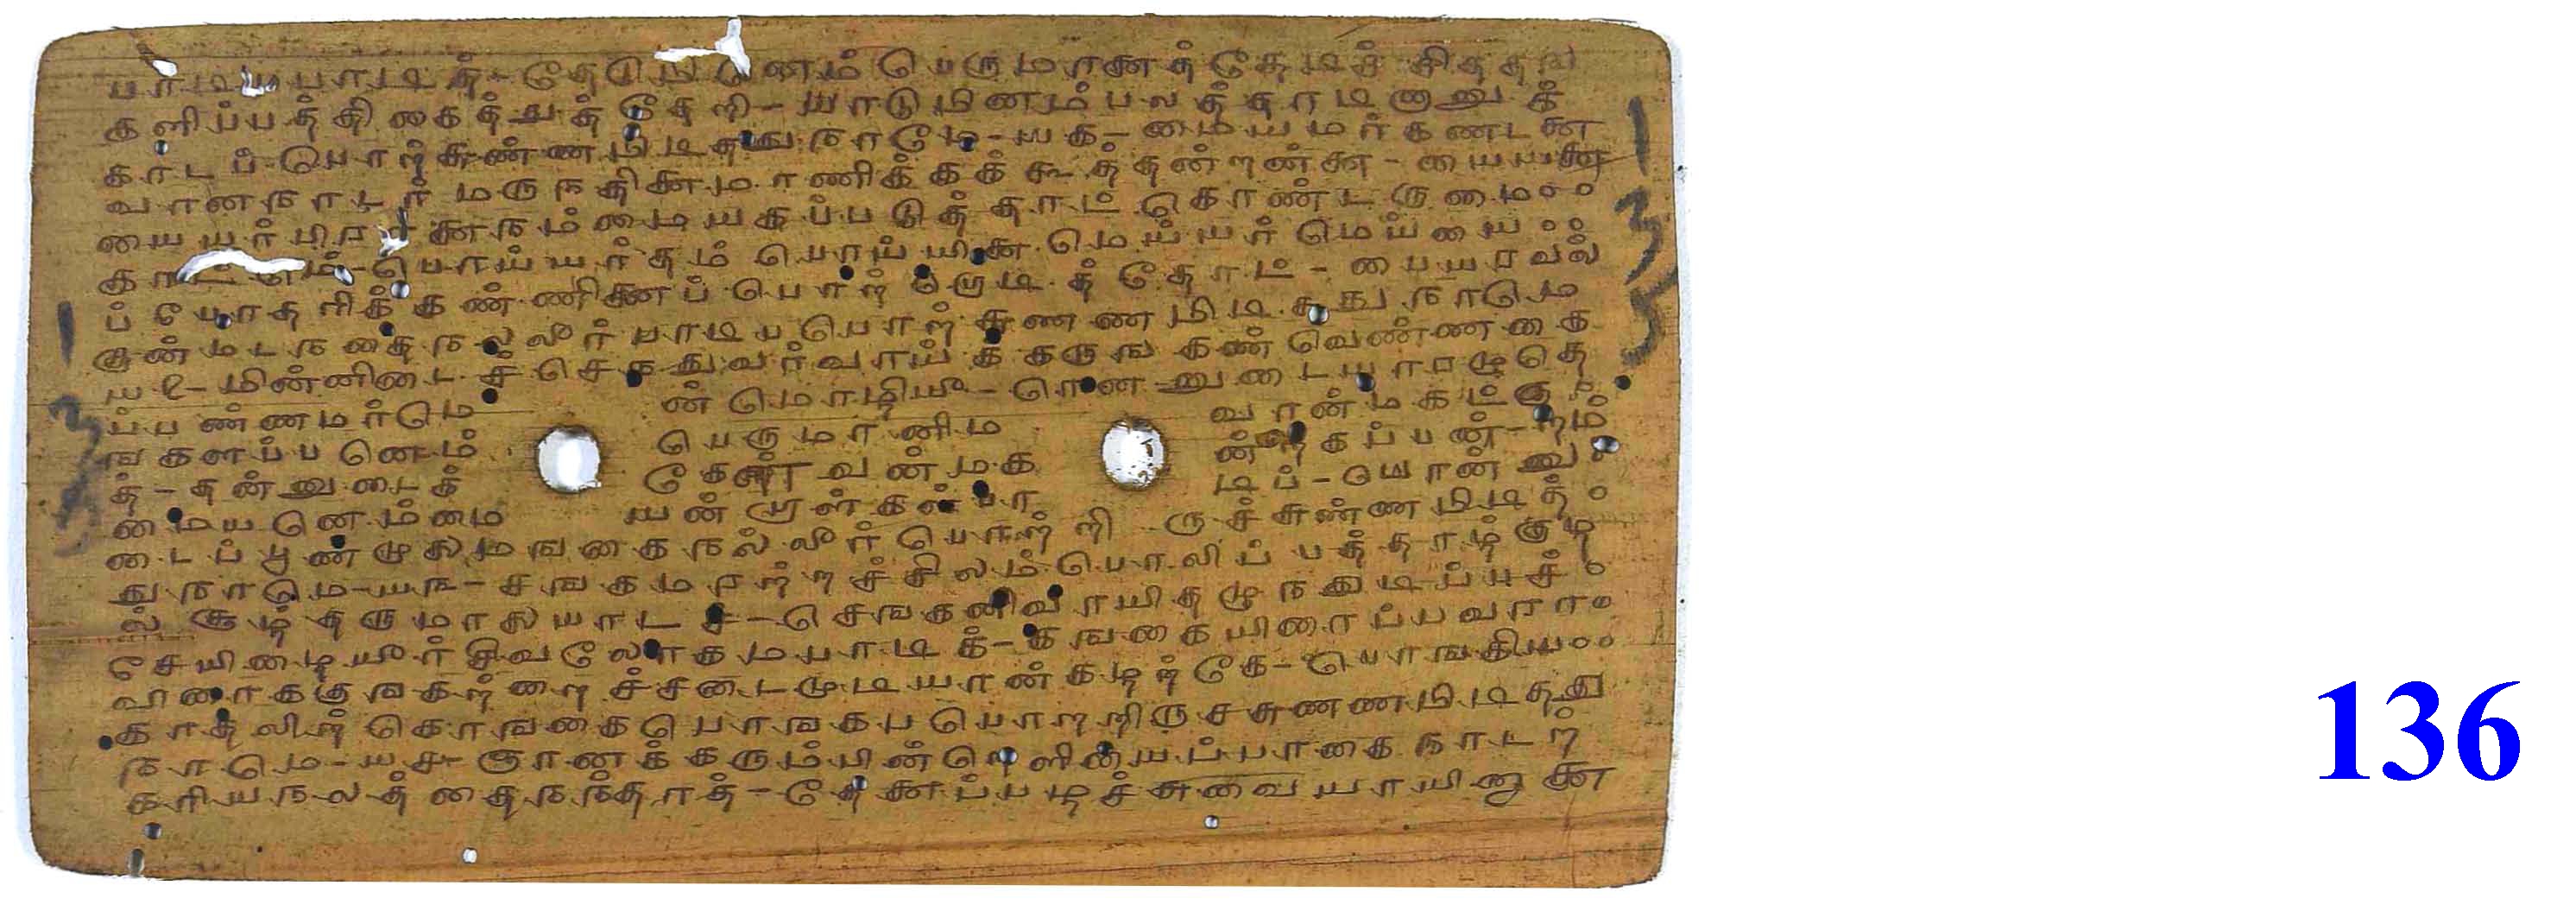 பாடிபபாடித்-தேடுமினெம் பெருமானைத் தேடிச் சிததங
களிப்பத்திகைத்துத்தேறி-யாடுமினம்பலத்தாடினானுக்
காடப்பொற்சுண்ணமிடிதது நாமே-யக-மையமர்கணடனை
வானநாடர்மருநதினைமாணிக்கக்கூத்தன்றன்னை-யையனை
யையர்பிரானைநம்மையகப்படுத்தாட்கொண்டருமை
காட்டும்-பொய்யர்தம்பொய்யினை மெய்யர்மெய்யை
ப்போதரிக்கண்ணிணைப்பொற்றொடித்தோட்-பையரவல்
குன்மடநதைநல்லீர்பாடிபபொற்சுணணமிடிதது நாமெ
யஉ-மின்னிடைச்செநதுவர்வாய்க்கருஙகண்வெண்ணகை
ப்பண்ணமர்மென்மொழியீ-ரென்னுடையாரமுதெ
ஙகளப்பனெம்பெருமானிமவான்மகட்கு
த்-தன்னுடைக்கேள்வன்மகன்றகப்பன்-றம்
மையனெம்மையன்றாள்கள்பாடிப்-பொன்னு
டைப்பூண்முலைமஙகைநல்லீர்பொற்றிருச்சுண்ணமிடித்
துநாமெ-யங-சஙகமரற்றச்சிலம்பொலிப்பத்தாழ்குழ
ல்சூழ்தருமாலையாடச்-செஙகனிவாயிதழுநதுடிப்பச்
சேயிழையீர்சிவலோகமபாடிக்-கஙகையிரைப்பவரா
விரைககுஙகற்றைச்சடைமுடியான்கழற்கே-பொஙகிய
காதலிற்கொஙகைபொஙகபபொறறிருசசுணணமிடிதது
நாமெ-யச-ஞானக்கரும்பின்றெளியைப்பாகை நாடற்
கரியநலத்தைநந்தாத்-தேனைப்பழச்சுவையாயினானை
136